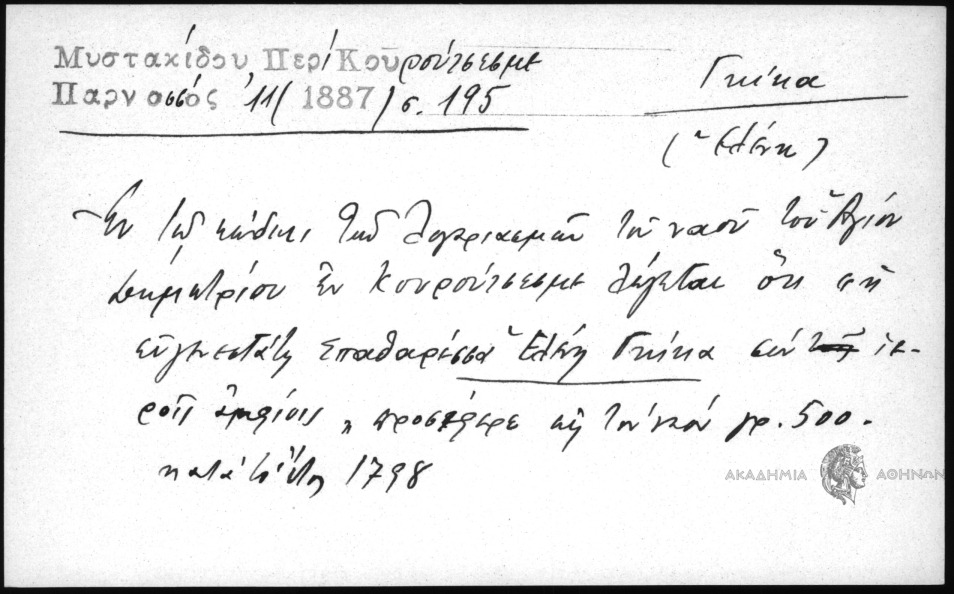 Μυστακίδου Περί Κουρούτσεσμε
Παρνασσός 11 (1887) σ. 195
Γκίκα
(Ἑλένη)
Ἐν τῷ κώδικι τῶν λογαριασμῶν τοῦ ναοῦ τοῦ Ἁγίου
Δημητρίου ἐν Κουρούτσεσμε λέγεται ὅτι "ἡ
εὐγενεστάτη Σπαθαρέσσα Ἑλένη Γκίκα σὺν ἱε-
ροῖς ἀμφίοις" προσέφερε εἰς τὸν ναόν γρ. 500.
κατὰ τὸ ἔτος 1798
ΑΚΑΔΗΜΙΑ ΑΘΗΝΩΝ